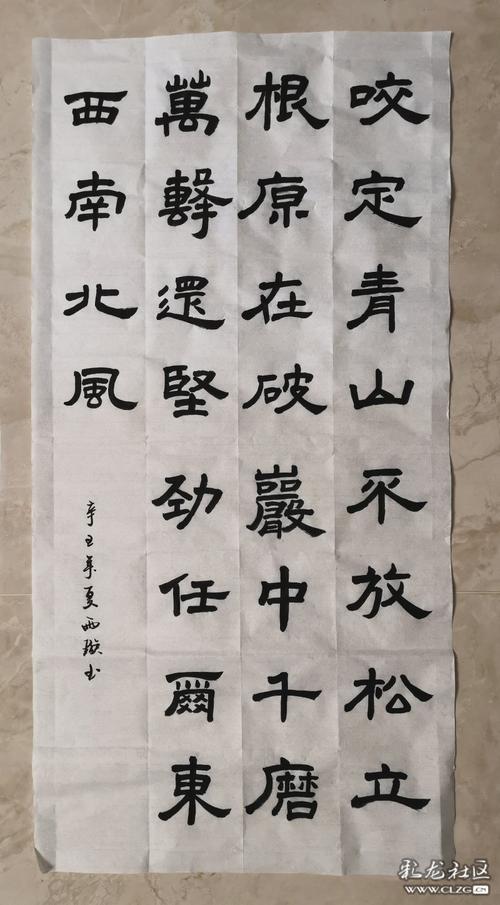 咬定青山不放松立
根原在破巖中千磨
萬擊還堅劲任爾東
西南北風
辛丑年夏西颂书
彩龙社区
WWW.CLZG.CN